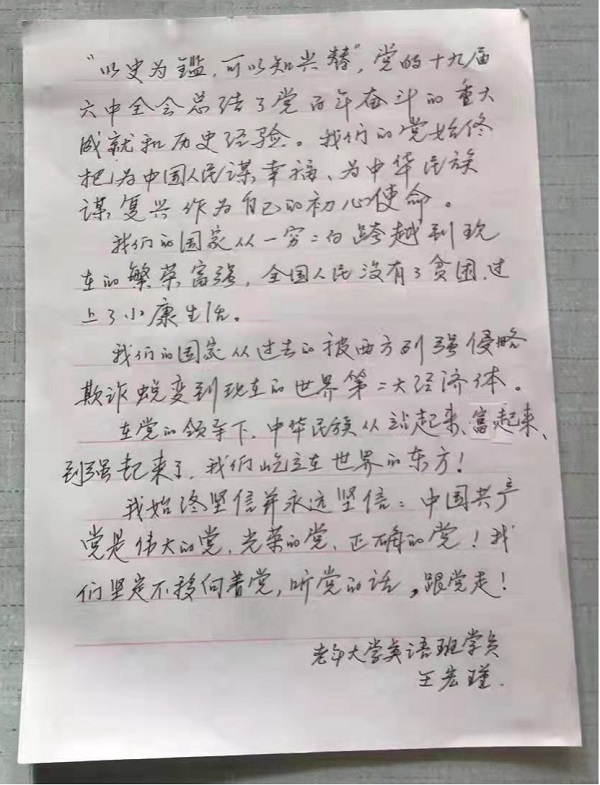 “以史为鑑，可以知兴替”，党的十九届
六中全会总结了党百年奋斗的重大
成就和历史经验。我们的党始终
把为中国人民谋幸福、为中华民族
谋复兴作为自己的初心使命。
我们的国家从一穷二白跨越到现
在的繁荣富强，全国人民没有了贫困，过
上了小康生活。
我们的国家从过去的被西方列强侵略
欺诈蜕变到现在的世界第二大经济体。
在党的领导下，中华民族从站起来、富起来、
到强起来了，我们屹立在世界的东方！
我始终坚信并永远坚信：中国共产
党是伟大的党、光荣的党、正确的党！我
们坚定不移向着党，听党的话，跟党走！
老年大学英语班学员
王宏瑾.